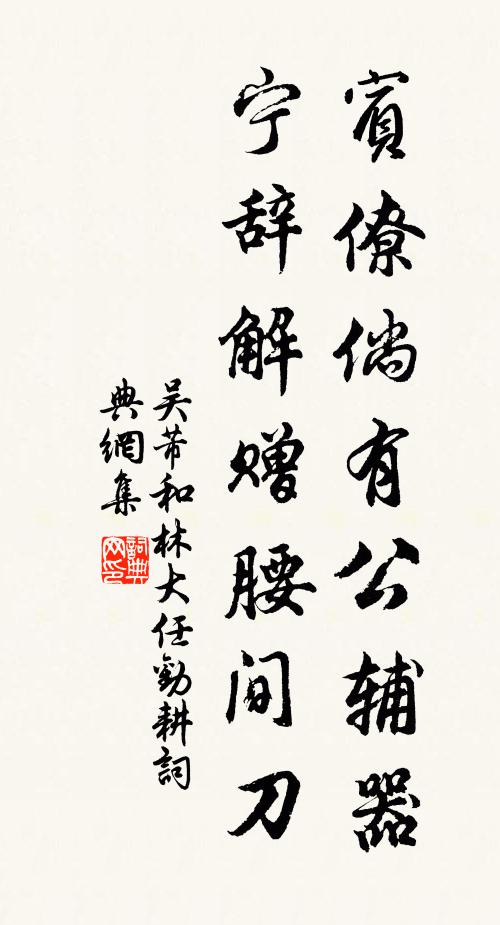 賓僚倘有公辅器
宁辞解赠腰间刀
吴芾和林大任勸耕詞
典網集
詞典網印